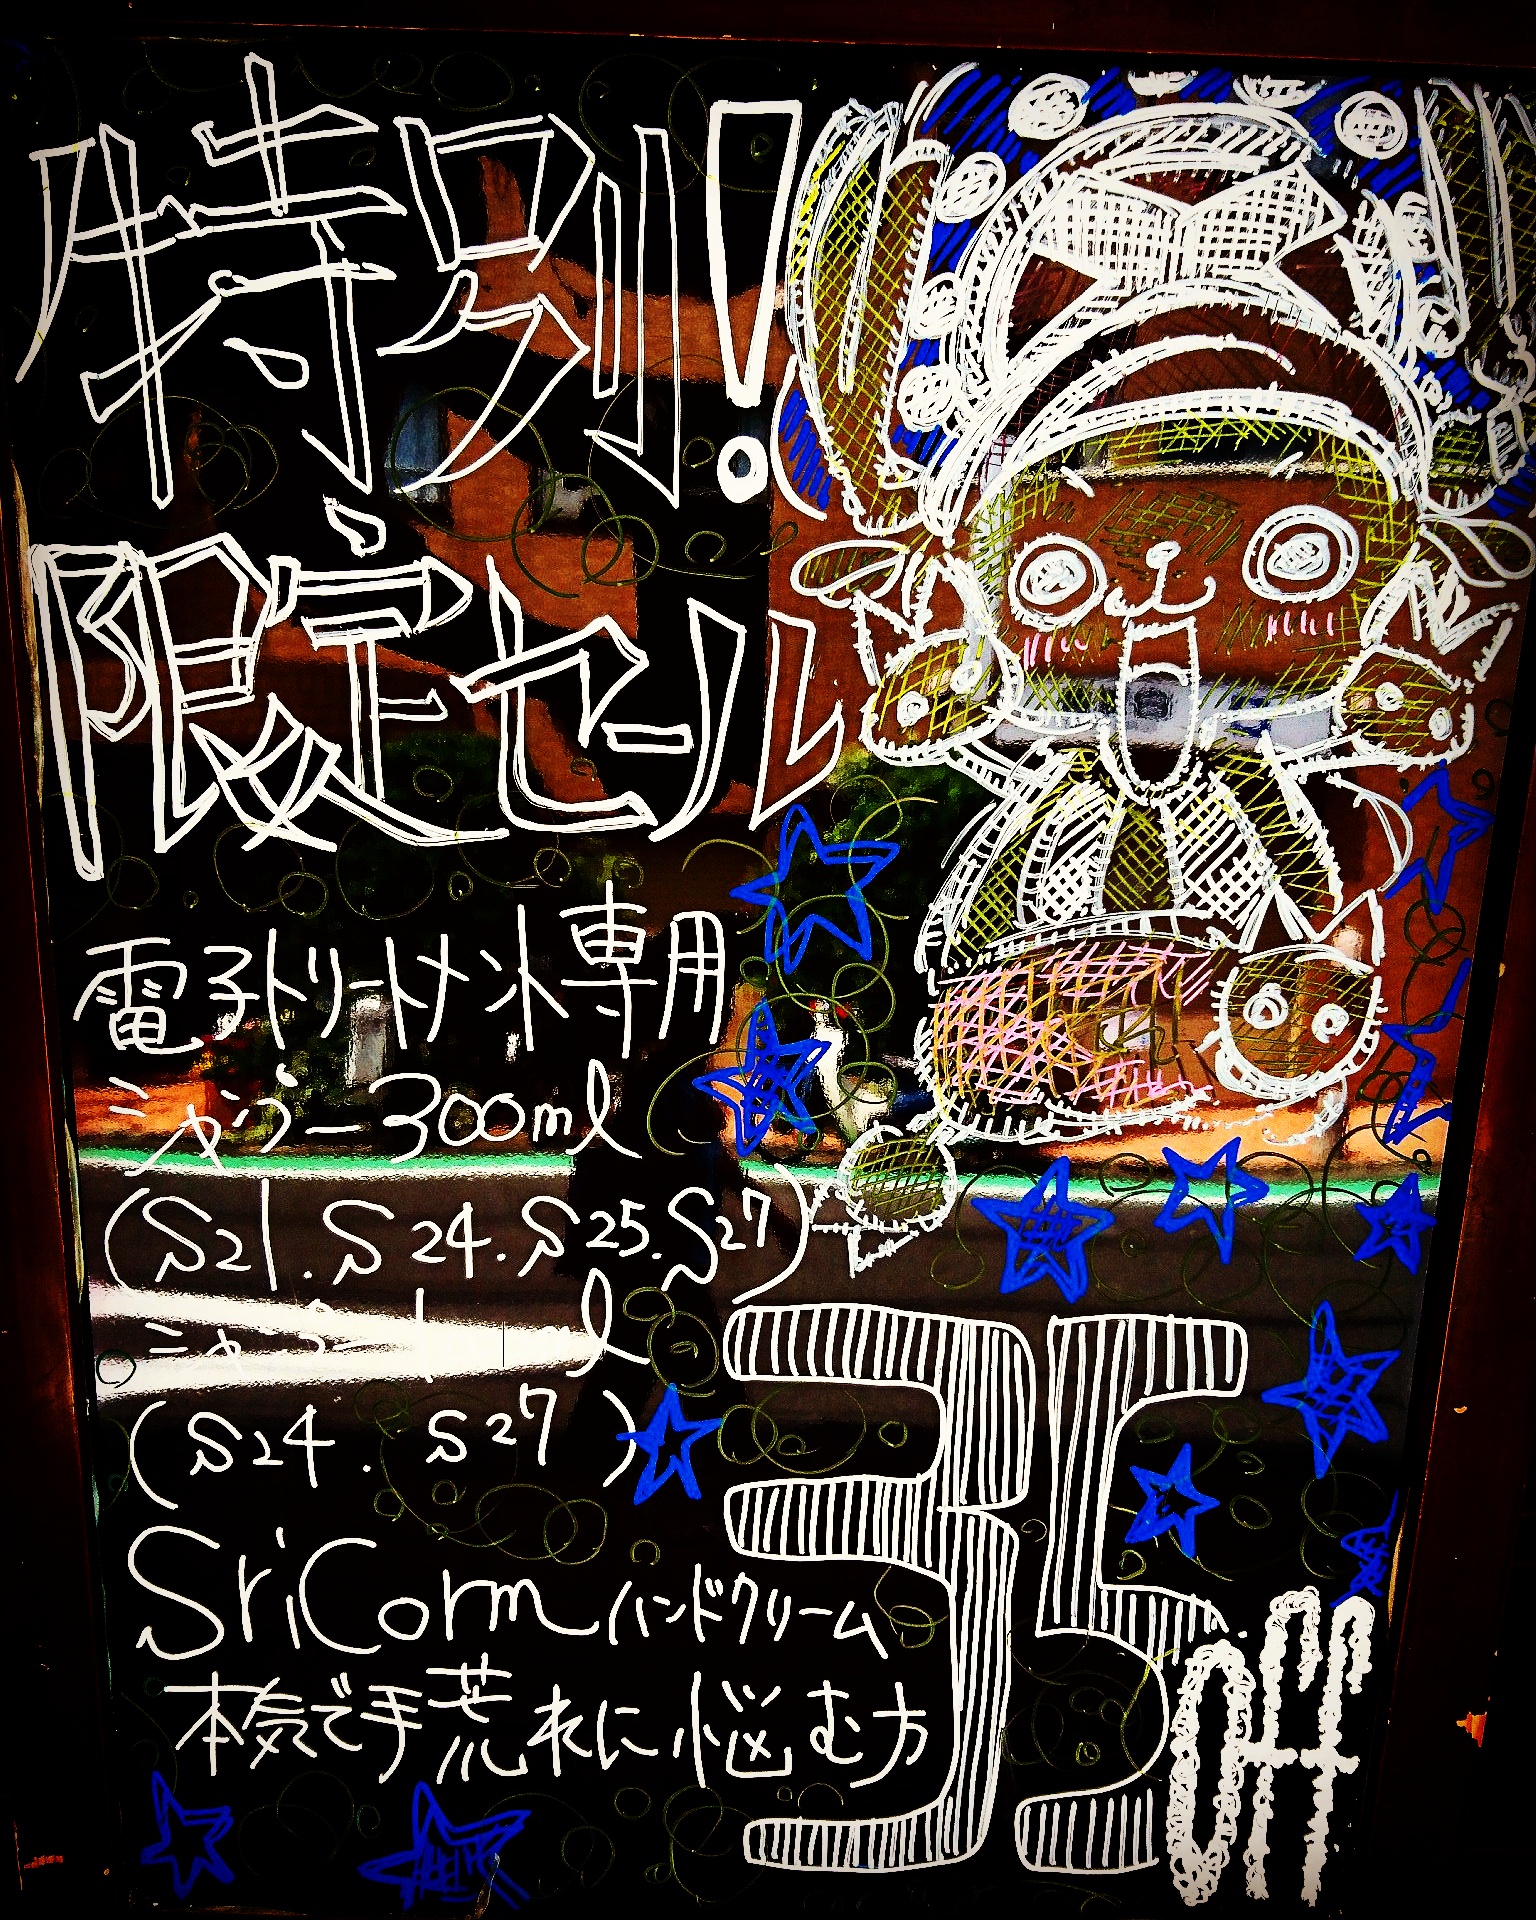 特別!
限定セール
電子トリートメント専用
シャワー300ml
(S21.S24.S25.S27)
シャワー1l
(S24.S27)
SriCorm ハンドクリーム
本気で手荒れに悩む方
35
off